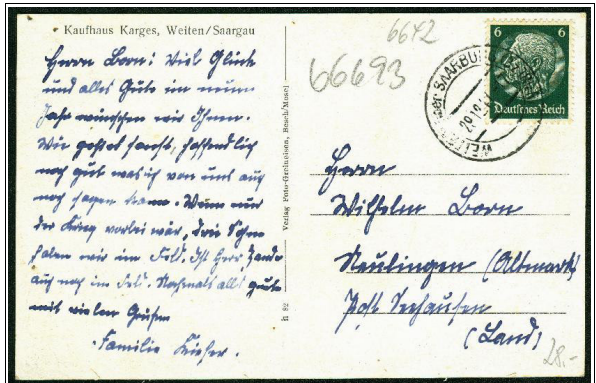 Kaufhaus Karges, Weiten/Saargau
Herrn Born! Viel Glück
und alles Gute im neuen
Jahr wünschen wir Ihnen.
Wie geht es sonst, hoffendlich
noch gut was ich von uns auch
noch sagen kann. Wenn nur
der Krieg vorbei wär, drei Söhne
haben wir im Feld. Ist Herr
auch noch im Feld. Nochmals alles gute
mit vielen Grüßen
Familie Kiefer.
Verlag Foto-Grethelsen, Besch/Mosel
h 82
6642
66693
6 6
Deutsches Reich
WEITEN über SAARBURG
29.12.
Herrn
Wilhelm Born
Neulingen (Altmark)
Post Seehausen
(Land)
28.-